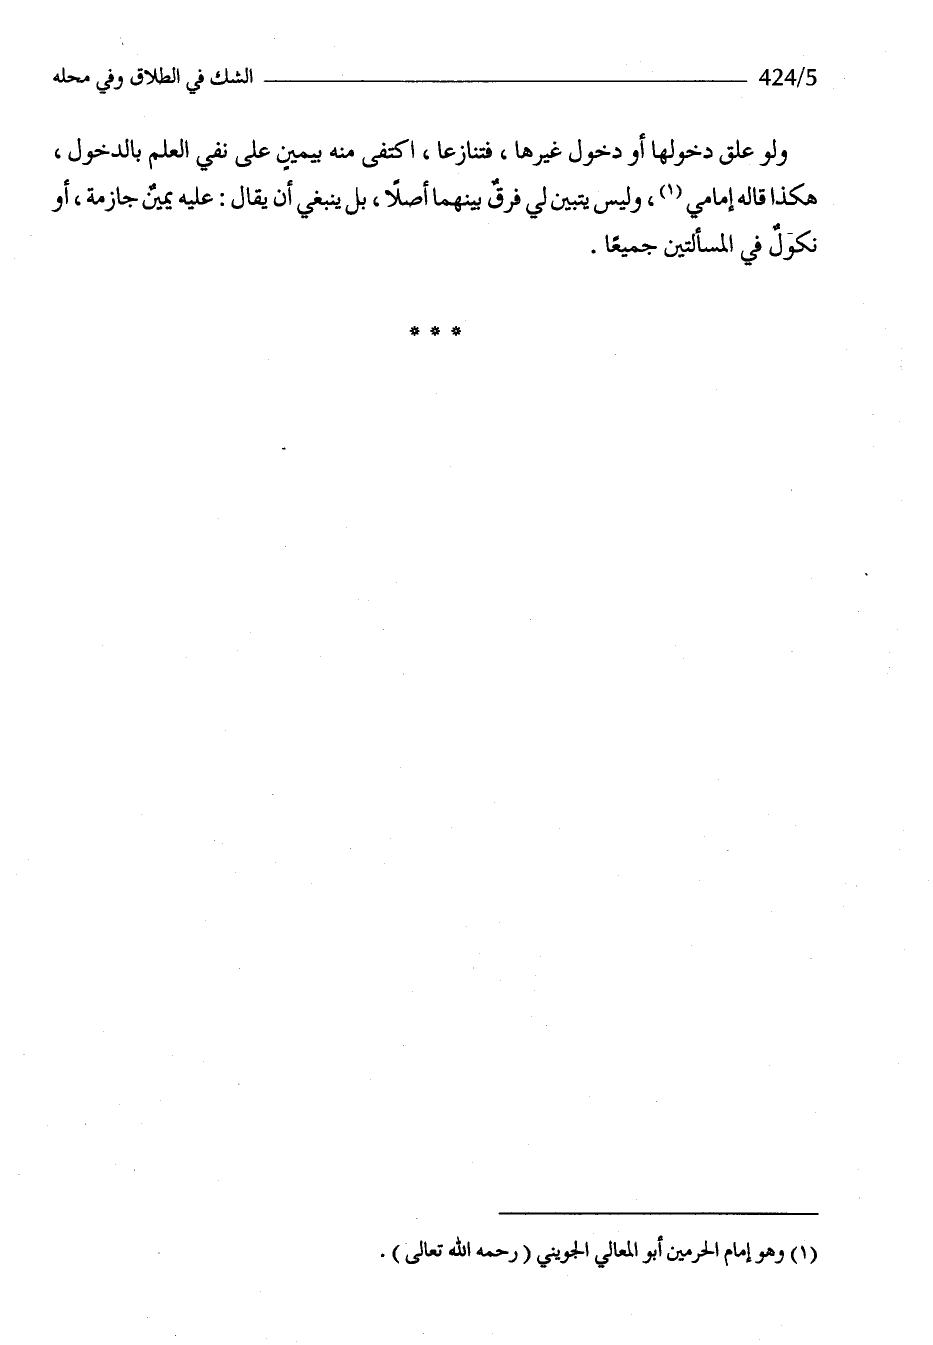 424/5 الشك في الطلاق وفي محله
ولو علق دخولها أو دخول غيرها ، فتنازعا ، اكتفى منه بيمينٍ على نفي العلم بالدخول ،
هكذا قاله إمامي (١) ، وليس يتبين لي فرقٌ بينهما أصلًا ، بل ينبغي أن يقال : عليه يمينٌ جازمة ، أو
نكَولٌ في المسألتين جميعًا .
* * *
(١) وهو إمام الحرمين أبو المعالي الجويني ( رحمه الله تعالى ) .